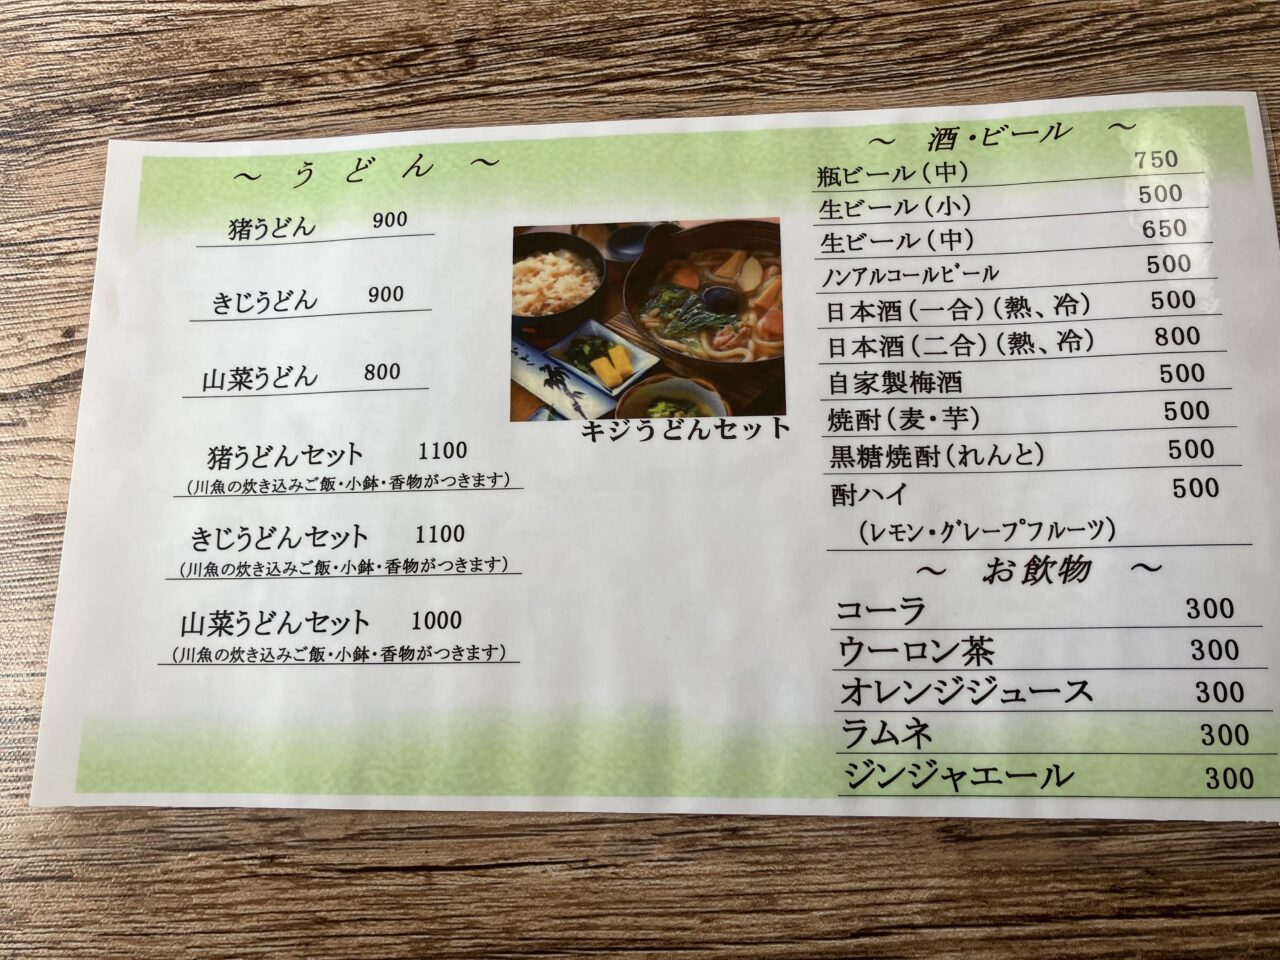 ～ う ど ん ～
猪うどん 900
きじうどん 900
山菜うどん 800
猪うどんセット 1100
（川魚の炊き込みご飯・小鉢・香物がつきます）
きじうどんセット 1100
（川魚の炊き込みご飯・小鉢・香物がつきます）
山菜うどんセット 1000
（川魚の炊き込みご飯・小鉢・香物がつきます）
キジうどんセット
～ 酒・ビール ～
瓶ビール（中） 750
生ビール（小） 500
生ビール（中） 650
ﾉﾝｱﾙｺｰﾙﾋﾞｰﾙ 500
日本酒（一合）（熱、冷） 500
日本酒（二合）（熱、冷） 800
自家製梅酒 500
焼酎（麦・芋） 500
黒糖焼酎（れんと） 500
酎ハイ 500
（ﾚﾓﾝ・ｸﾞﾚｰﾌﾟﾌﾙｰﾂ）
～ お飲物 ～
コーラ 300
ウーロン茶 300
オレンジジュース 300
ラムネ 300
ジンジャエール 300